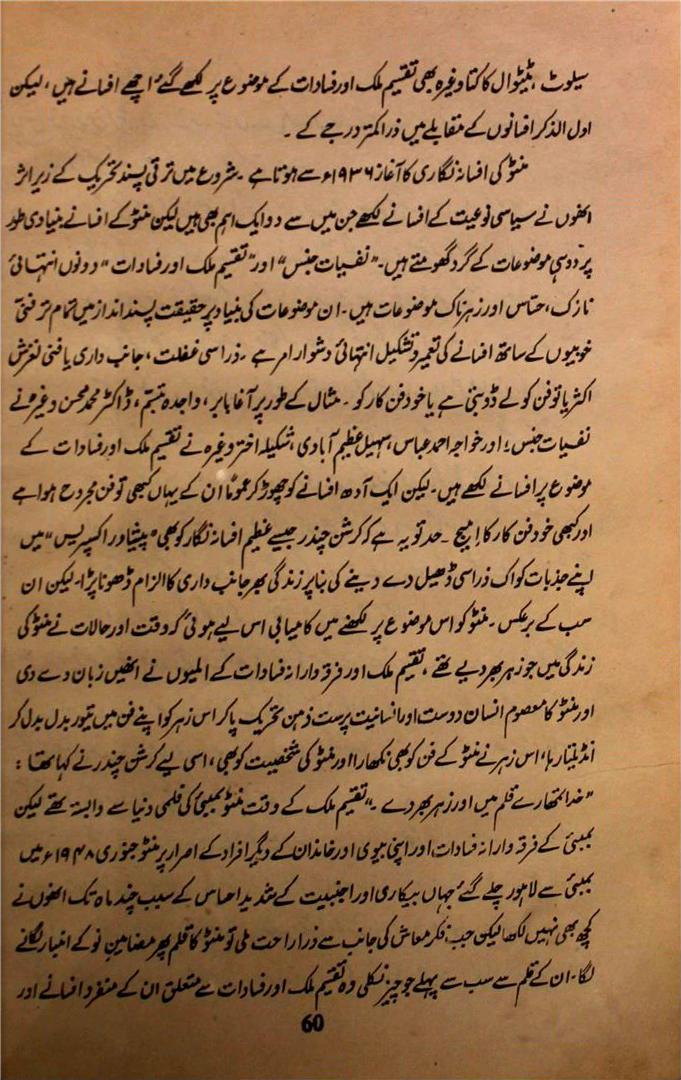 سیلوٹ، ٹیٹوال کا کتا وغیرہ بھی تقسیم ملک اور فسادات کے موضوع پر لکھے گئے اچھے افسانے ہیں، لیکن
اول الذکر افسانوں کے مقابلے میں ذرا کمتر درجے کے۔
منٹو کی افسانہ نگاری کا آغاز ۱۹۳۶ء سے ہوتا ہے۔ شروع میں ترقی پسند تحریک کے زیر اثر
انھوں نے سیاسی نوعیت کے افسانے لکھے جن میں سے دو ایک اہم بھی ہیں لیکن منٹو کے افسانے بنیادی طور
پر دو ہی موضوعات کے گرد گھومتے ہیں۔ "نفسیات جنس" اور "تقسیم ملک اور فسادات" دونوں انتہائی
نازک، حساس اور زہرناک موضوعات ہیں۔ ان موضوعات کی بنیاد پر حقیقت پسند انداز میں تمام تر فنی
خوبیوں کے ساتھ افسانے کی تعمیر و تشکیل انتہائی دشوار امر ہے۔ ذرا سی غفلت، جانب داری یا فنی لغزش
اکثر یا تو فن کو لے ڈوبتی ہے یا خود فن کار کو۔ مثال کے طور پر آغا بابر، واجدہ تبسم، ڈاکٹر محمد محسن وغیرہ نے
نفسیات جنس؛ اور خواجہ احمد عباس، سہیل عظیم آبادی، شکیلہ اختر وغیرہ نے تقسیم ملک اور فسادات کے
موضوع پر افسانے لکھے ہیں۔ لیکن ایک آدھ افسانے کو چھوڑ کر عموماً ان کے یہاں کبھی تو فن مجروح ہوا ہے
اور کبھی خود فن کار کا امیج۔ حد تو یہ ہے کہ کرشن چندر جیسے عظیم افسانہ نگار کو بھی "پیشاور اکسپریس" میں
اپنے جذبات کو اک ذرا سی ڈھیل دے دینے کی بنا پر زندگی بھر جانب داری کا الزام ڈھونا پڑا۔ لیکن ان
سب کے برعکس۔ منٹو کو اس موضوع پر لکھنے میں کامیابی اس لیے ہوئی کہ وقت اور حالات نے منٹو کی
زندگی میں جو زہر بھر دیے تھے، تقسیم ملک اور فرقہ وارانہ فسادات کے المیوں نے انھیں زبان دے دی
اور منٹو کا معصوم انسان دوست اور انسانیت پرست ذہن تحریک پا کر اس زہر کو اپنے فن میں تیور بدل بدل کر
انڈیلتا رہا، اس زہر نے منٹو کے فن کو بھی نکھارا اور منٹو کی شخصیت کو بھی، اسی لیے کرشن چندر نے کہا تھا:
"خدا تمھارے قلم میں اور زہر بھر دے۔" تقسیم ملک کے وقت منٹو بمبئی کی فلمی دنیا سے وابستہ تھے لیکن
بمبئی کے فرقہ وارانہ فسادات اور اپنی بیوی اور خاندان کے دیگر افراد کے اصرار پر منٹو جنوری ۱۹۴۸ء میں
بمبئی سے لاہور چلے گئے جہاں بیکاری اور اجنبیت کے شدید احساس کے سبب چند ماہ تک انھوں نے
کچھ بھی نہیں لکھا لیکن جب فکر معاش کی جانب سے ذرا راحت ملی تو منٹو کا قلم پھر مضامینِ نو کے انبار لگانے
لگا۔ ان کے قلم سے سب سے پہلے جو چیز نکلی وہ تقسیم ملک اور فسادات سے متعلق ان کے منفرد افسانے اور
60